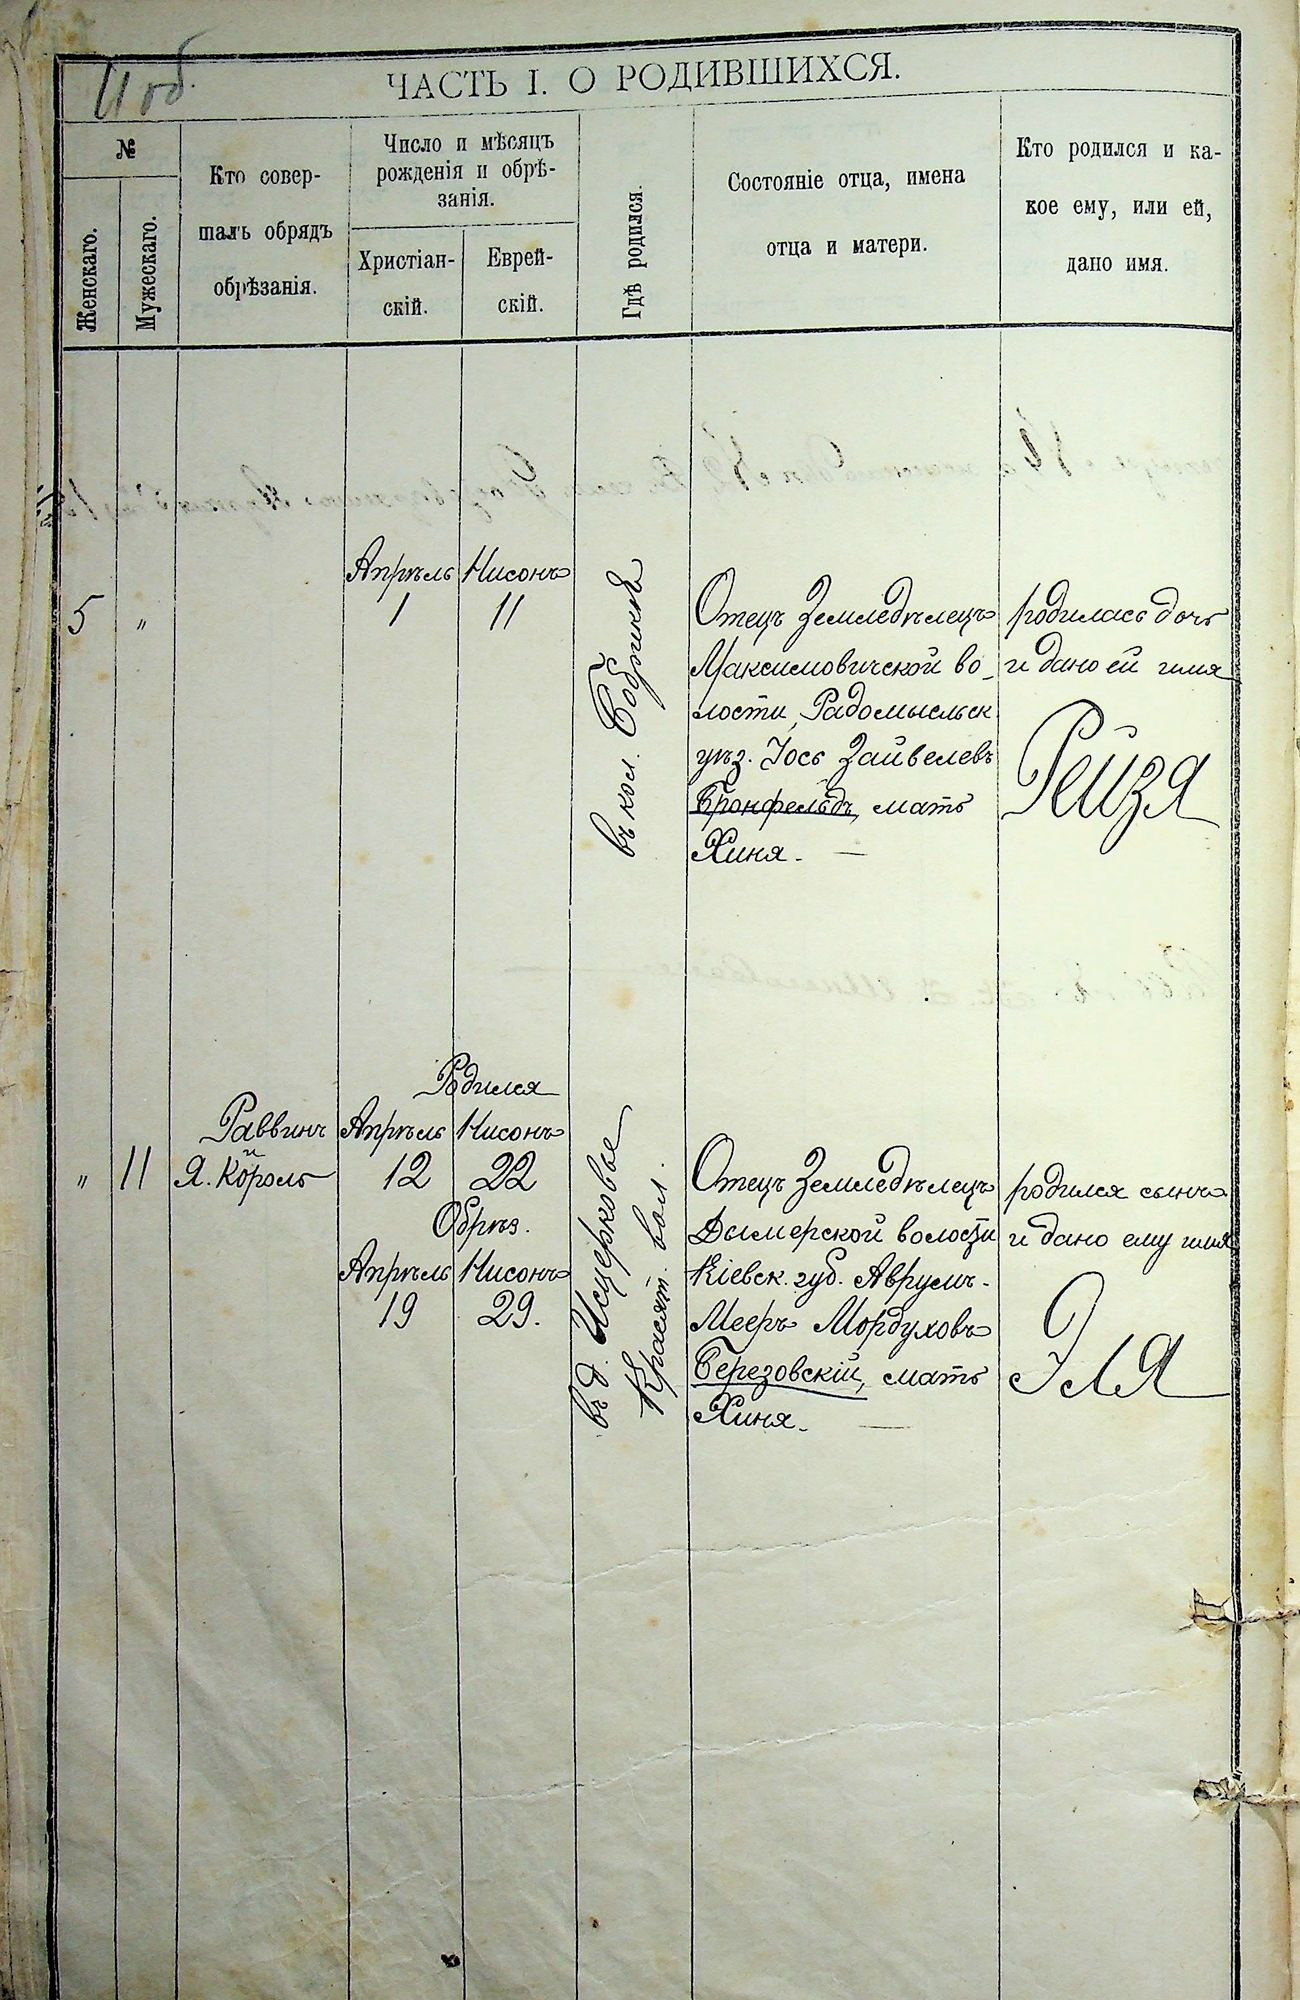 11 об.
ЧАСТЬ I. О РОДИВШИХСЯ.
№
Женскаго.
Мужескаго.
Кто совер-
шалъ обрядъ
обрѣзанія.
Число и мѣсяцъ
рожденія и обрѣ-
занія.
Христіан-
скій.
Еврей-
скій.
Гдѣ родился.
Состояніе отца, имена
отца и матери.
Кто родился и ка-
кое ему, или ей,
дано имя.
5
"
Апрѣль
1
Нисонъ
11
въ кол.
Отецъ Земледѣлецъ
Максимовичской во-
лости, Радомысльск
уѣз. Іось Зайвелевъ
Бронфельдъ, мать
Хиня. —
родилась дочь
и дано ей имя
Рейзя
"
11
Раввинъ
и
Я. Король
Родился
Апрѣль Нисонъ
12 22
Обрѣз.
Апрѣль Нисонъ
19 29.
въ д.
Красят. вол.
Отецъ Земледѣлецъ
Дымерской волости
Кіевск. губ. Аврумъ-
Мееръ Мордуховъ
Березовскій, мать
Хиня. —
родился сынъ
и дано ему имя
Эля